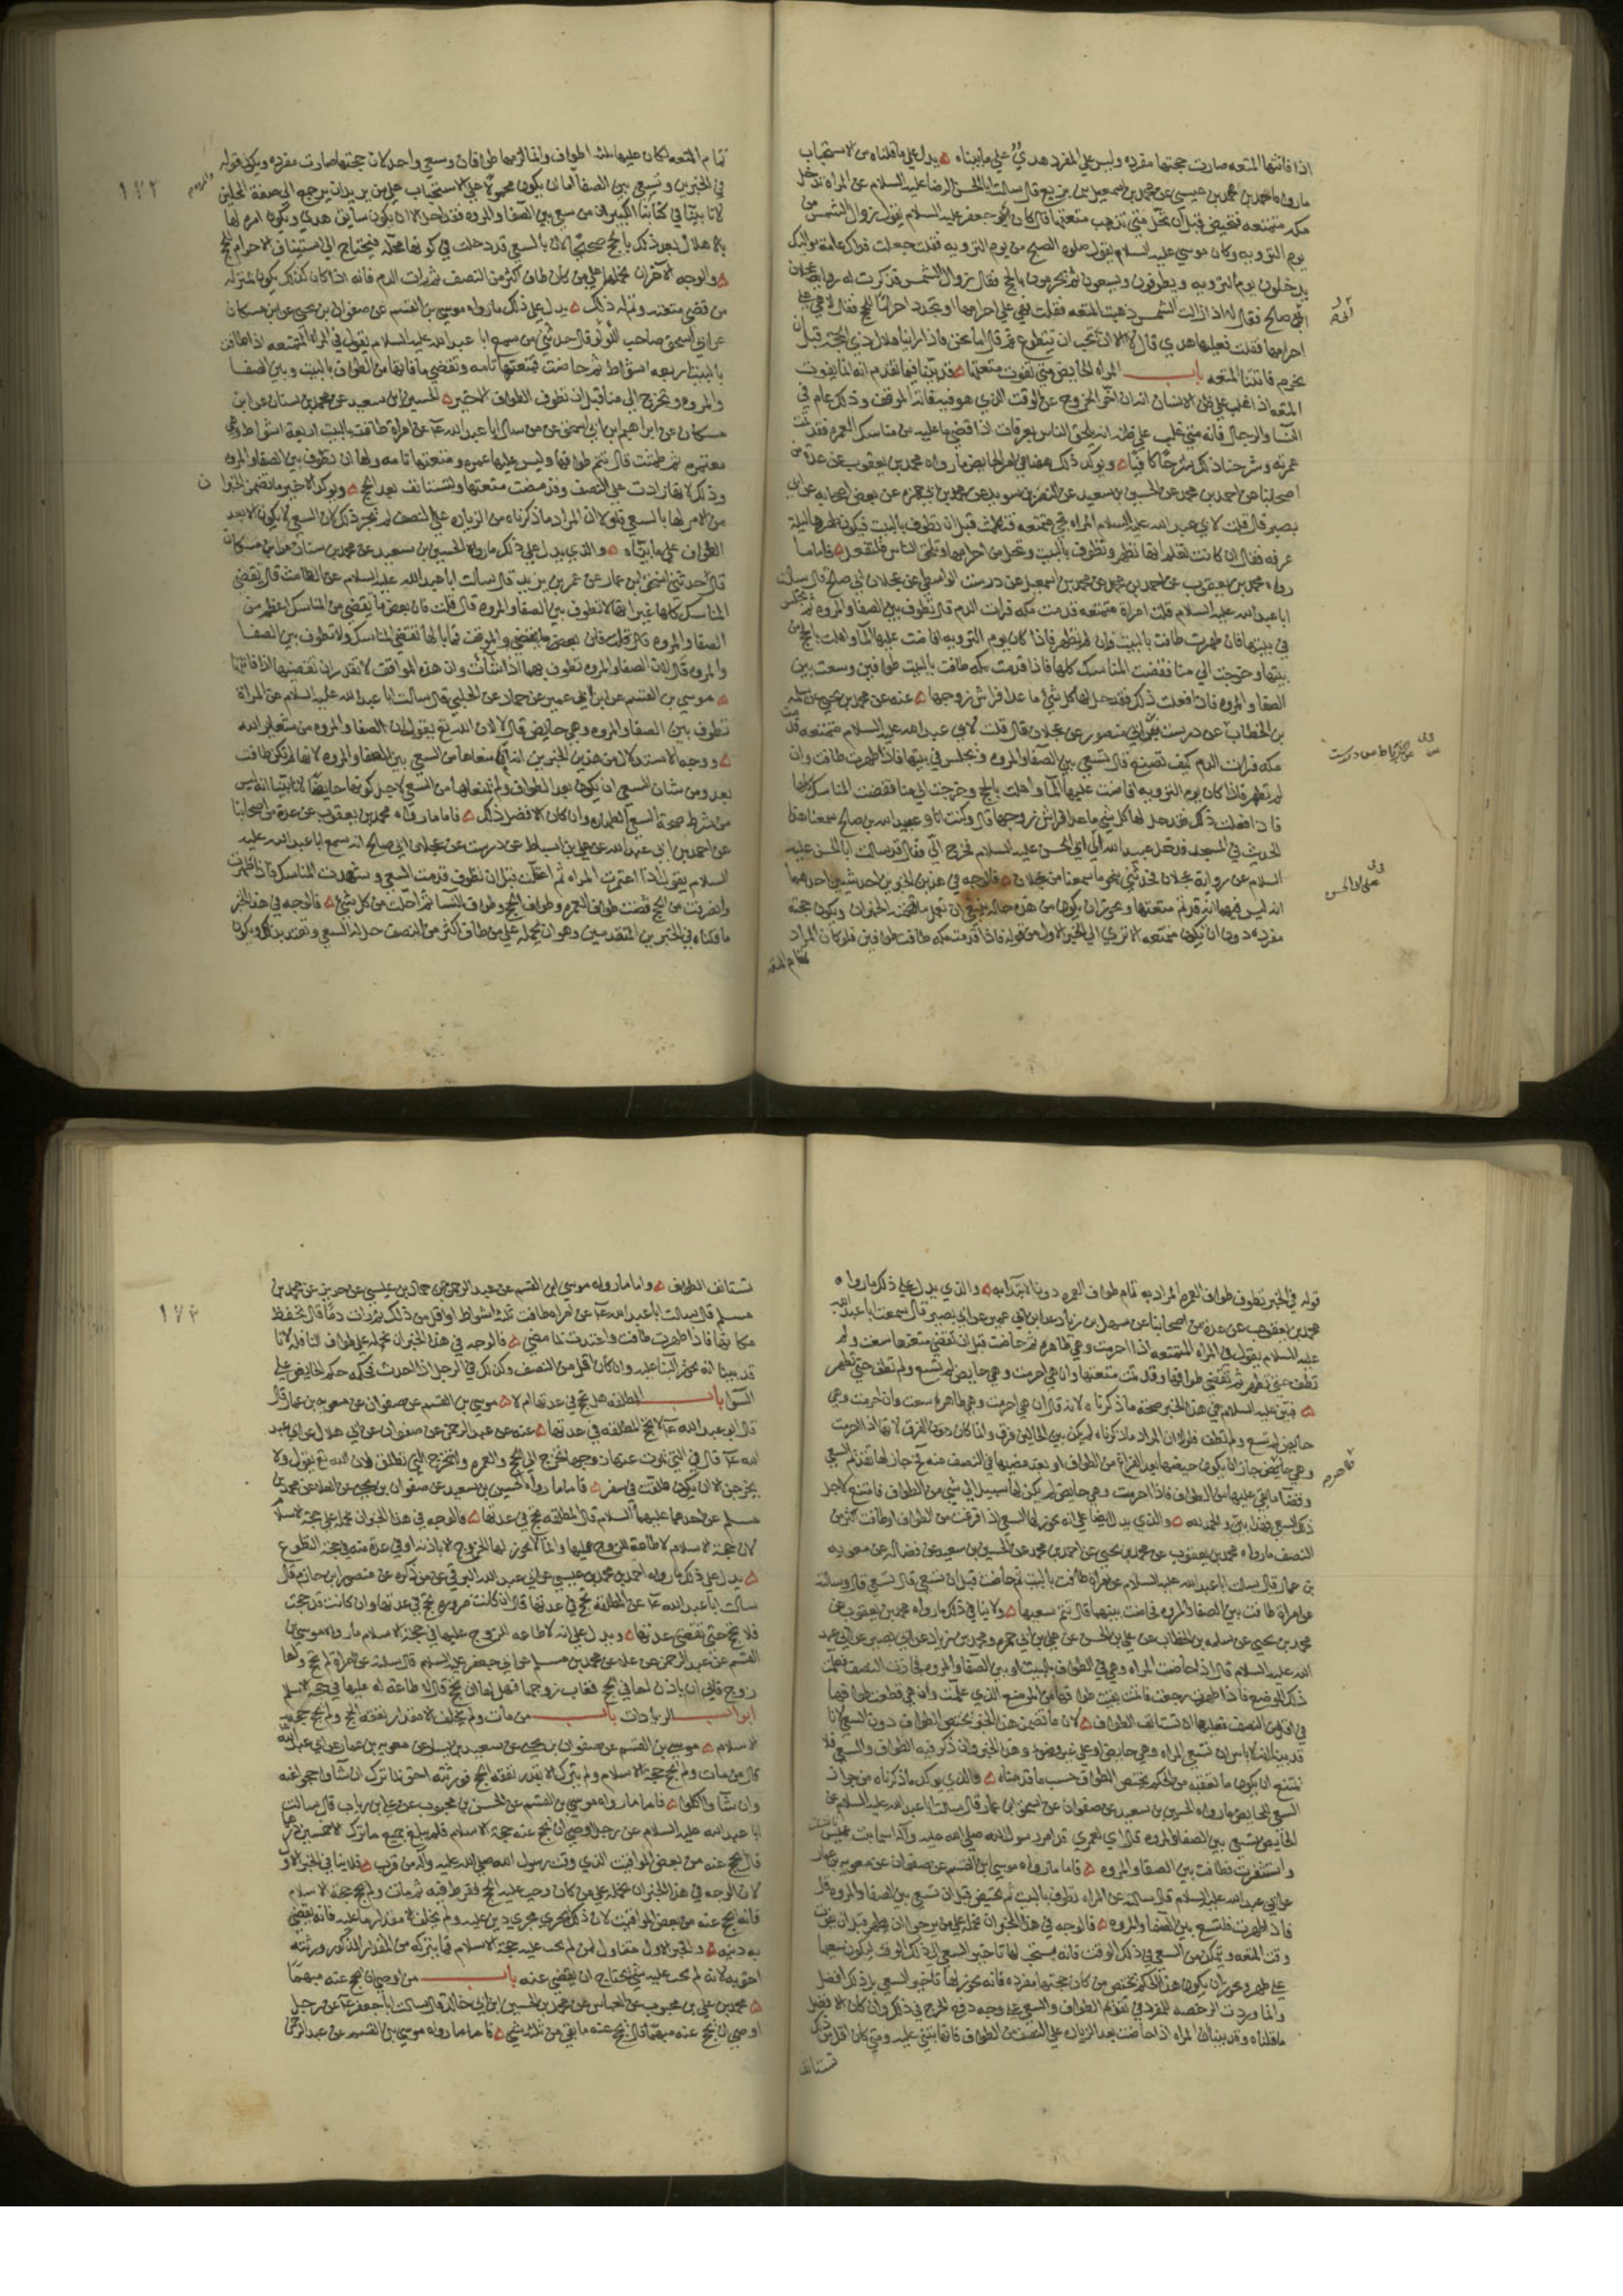 اذا فاتتها المتعه صارت حجتها مفرده وليس علي المفرد هدي علي ما بيناه يدل علي ما قلناه من الاستحباب
ما رواه احمد بن محمد بن عيسي عن محمد بن اسمعيل بن بزيع قال سالت ابا الحسن الرضا عليه السلام عن المراه تدخل
مكه متمتعه فتحيض قبل ان تحل متي تذهب متعتها قال كان ابو جعفر عليه السلام يقول زوال الشمس من
يوم الترويه وكان موسي عليه السلام يقول صلوه الصبح من يوم الترويه فقلت جعلت فداك عامة مواليك
يدخلون يوم الترويه ويطوفون ويسعون ثم يحرمون بالحج فقال زوال الشمس فذكرت له روايه عجلان
ابي صالح فقال لا اذا زالت الشمس ذهبت المتعه فقلت فهي علي احرامها او تجدد احرامها للحج فقال لا هي علي
احرامها فقلت فعليها هدي قال لا الا ان تحب ان تتطوع ثم قال اما نحن فاذا راينا هلال ذي الحجه قبل ان
نحرم فاتتنا المتعه باب المراه الحايض متي تفوت متعتها قد بينا فيما تقدم انه انما يفوت
المتعه اذا غلب علي ظن الانسان انه ان اخر الخروج عن الوقت الذي هو فيه فاته الموقف وذلك عام في
النسا والرجال فانه متي غلب علي ظنه انه يلحق الناس بعرفات اذا قضي ما عليه من مناسك العمره فقد تمت
عمرته وشرحنا ذلك شرحا كافيا ويوكد ذلك ها هنا في امر الحايض ما رواه محمد بن يعقوب عن عدة من
اصحابنا عن احمد بن محمد عن الحسين بن سعيد عن النضر بن سويد عن محمد بن ابي حمزه عن بعض اصحابه عن ابي
بصير قال قلت لابي عبد الله عليه السلام المراه تجي متمتعه فتطمث قبل ان تطوف بالبيت فيكون طهرها ليلة
عرفه فقال ان كانت تعلم انها تطهر وتطوف بالبيت وتحل من احرامها وتلحق الناس فلتفعل فاما ما
رواه محمد بن يعقوب عن احمد بن محمد عن محمد بن اسمعيل عن درست الواسطي عن عجلان ابي صالح قال سالت
ابا عبد الله عليه السلام قلت امراة متمتعه قدمت مكه فرات الدم قال تطوف بين الصفا والمروه ثم تجلس
في بيتها فان طهرت طافت بالبيت وان لم تطهر فاذا كان يوم الترويه افاضت عليها الما واهلت بالحج من
بيتها وخرجت الي منا فقضت المناسك كلها فاذا قدمت مكه طافت بالبيت طوافين وسعت بين
الصفا والمروه فاذا فعلت ذلك فقد حل لها كل شيء ما عدا فراش زوجها عنه عن محمد بن يحيي عن سلمه
بن الخطاب عن درست بن ابي منصور عن عجلان قال قلت لابي عبد الله عليه السلام متمتعه قدمت
مكه فرات الدم كيف تصنع قال تسعي بين الصفا والمروه وتجلس في بيتها فاذا طهرت طافت وان
لم تطهر فاذا كان يوم الترويه افاضت عليها الما واهلت بالحج وخرجت الي منا فقضت المناسك كلها
فاذا فعلت ذلك فقد حل لها كل شي ما عدا فراش زوجها قال وكنت انا وعبيد الله بن صالح سمعنا هذا
الحديث في المسجد فدخل عبيد الله الي ابي الحسن عليه السلام فخرج الي فقال قد سالت ابا الحسن عليه
السلام عن رواية عجلان فحدثني بنحو ما سمعنا من عجلان فالوجه في هذين الخبرين احد شيين احدهما
انه ليس فيهما انه قد تم متعتها ويجوز ان يكون من هذه حاله ينبغي ان تعمل ما تضمنه الخبران ويكون حجته
مفرده دون ان يكون متمتعه الا تري الي الخبر الاول من قوله فاذا قدمت مكه طافت طوافين فلو كان المراد
تمام المتعه
تمام المتعه لكان عليها ثلثه اطواف وانما الزمها طوافان وسعي واحد لان حجتها صارت مفرده ويكون قوله
في الخبرين وتسعي بين الصفا اما ان يكون محمولا علي الاستحباب
والمروه
١٧٢
باهلال بعد ذلك بالحج صحيحا لان بالسعي قد دخلت في كونها محله فيحتاج الي استيناف الاحرام للحج
والوجه الاخر ان نحملها علي من كان طاف اكثر من النصف ثم رات الدم فانه اذا كان كذلك يكون بمنزله
من قضي متعته وتم له ذلك يدل علي ذلك ما رواه موسي بن القسم عن صفوان بن يحيي عن ابن مسكان
عن ابي اسحق صاحب اللولو قال حدثني من سمع ابا عبد الله عليه السلام يقول في المراه المتمتعه اذا طافت
بالبيت اربعه اشواط ثم حاضت فمتعتها تامه وتقضي ما فاتها من الطواف بالبيت وبين الصفا
والمروه وتخرج الي منا قبل ان تطوف الطواف الاخير الحسين بن سعيد عن محمد بن سنان عن ابن
مسكان عن ابراهيم بن ابي اسحق عن من سال ابا عبد الله عن امراة طافت بالبيت اربعة اشواط وهي
معتمره ثم طمثت قال تتم طوافها وليس عليها غيره ومتعتها تامه ولها ان تطوف بين الصفا والمروه
وذلك لانها زادت علي النصف وقد مضت متعتها ولتستانف بعد الحج ويوكد الاخير ما تضمن الخبران
من الامر لها بالسعي فلولا ان المراد ما ذكرناه من الزياده علي النصف لم يجز ذلك لان السعي لا يكون الا بعد
الطواف علي ما بيناه والذي يدل علي ذلك ما رواه الحسين بن سعيد عن محمد بن سنان عن ابن مسكان
قال حدثني اسحق بن عمار عن عمر بن يزيد قال سالت ابا عبد الله عليه السلام عن الطامث قال تقضي
المناسك كلها غير انها لا تطوف بين الصفا والمروه قال قلت فان بعض ما تقضي من المناسك اعظم من
الصفا والمروه فما بالها تقضي المناسك ولا تطوف بين الصفا
والمروه قال لان الصفا والمروه تطوف بهما اذا شآت وان هذه المواقف لا تقدر ان تقضيها اذا فاتتها
موسي بن القسم عن ابن ابي عمير عن حماد عن الحلبي قال سالت ابا عبد الله عليه السلام عن المراة
تطوف بين الصفا والمروه وهي حايض قال لا لان الله تع يقول ان الصفا والمروه من شعاير الله
ووجه الاستدلال من هذين الخبرين
بعد ومن شان السعي ان يكون بعد الطواف
من شرط صحة السعي الطهاره وان كان الافضل ذلك فاما ما رواه محمد بن يعقوب عن عدة من اصحابنا
عن احمد بن ابي عبد الله عن علي بن اسباط عن درست عن عجلان ابي صالح انه سمع ابا عبد الله عليه
السلام يقول اذا اعتمرت المراه ثم اعتلت قبل ان تطوف قدمت السعي وشهدت المناسك فاذا طهرت
وانصرفت من الحج قضت طواف العمره وطواف الحج وطواف النسا ثم احلت من كل شيء فالوجه في هذا الخبر
ما قلناه في الخبرين المتقدمين وهو ان نحمله علي من طاف اكثر من النصف
قوله في الخبر تطوف طواف العمره المراد به تمام طواف العمره دون الابتدا به والذي يدل علي ذلك ما رواه
محمد بن يعقوب عن عدة من اصحابنا عن سهل بن زياد عن ابن ابي عمير عن ابي بصير قال سمعت ابا عبد الله
عليه السلام يقول في المراه المتمتعه اذا احرمت وهي طاهره ثم حاضت قبل ان تقضي متعتها سعت ولم
تطف حتي تطهر ثم تقضي طوافها وقد تمت متعتها وان هي احرمت وهي حايض لم تسع ولم تطف حتي تطهر
فبين عليه السلام في هذا الخبر صحة ما ذكرناه لانه قال ان هي احرمت وهي طاهره سعت وان احرمت وهي
حايض لم تسع ولم تطف فلولا ان المراد ما ذكرناه لم يكن بين الحالين فرق وانما كان دون الفرق لانها اذا احرمت
وهي
وقضا ما بقي عليها من الطواف فاذا احرمت وهي حايض لم يكن لها سبيل الي شي من الطواف فامتنع لاجل
ذلك السعي
النصف ما رواه محمد بن يعقوب عن محمد بن يحيي عن احمد بن محمد عن الحسين بن سعيد عن فضاله عن معويه
بن عمار قال سالت ابا عبد الله عليه السلام عن امراة طافت بالبيت ثم حاضت قبل ان تسعي قال تسعي قال وسالته
عن امراة طافت بين الصفا والمروه فحاضت بينهما قال تتم سعيها ولا ينافي ذلك ما رواه محمد بن يعقوب عن
محمد بن يحيي عن سلمه بن الخطاب عن علي بن الحسن عن علي بن ابي حمزه ومحمد بن زياد عن ابي بصير عن ابي عبد
الله عليه السلام قال اذا حاضت المراه وهي في الطواف بالبيت او بين الصفا والمروه فجازت النصف فعلمت
ذلك الموضع فاذا طهرت رجعت فاتمت بقيت طوافها من الموضع الذي علمت وان هي قطعت طوافها
في اقل من النصف فعليها ان تستانف الطواف لان ما تضمن هذا الخبر يختص الطواف دون السعي لانا
قد بينا انه لا باس ان تسعي المراه وهي حايض او علي غير وضوء وهذا الخبر وان ذكر فيه الطواف والسعي فلا
يمتنع ان يكون ما تعقبه من الحكم يختص الطواف حسب ما قدمناه والذي يوكد ما ذكرناه من جواز
السعي للحايض ما رواه الحسين بن سعيد عن صفوان عن اسحق بن عمار قال سالت ابا عبد الله عليه السلام عن
الحايض تسعي بين الصفا والمروه قال اي لعمري قد امر رسول الله صلي الله عليه وآله اسما بنت عميس
واستثفرت فطافت بين الصفا والمروه فاما ما رواه موسي بن القسم عن صفوان عن معويه بن عمار
عن ابي عبد الله عليه السلام قال سالته عن المراه تطوف بالبيت ثم تحيض قبل ان تسعي بين الصفا والمروه قال
فاذا طهرت فلتسع بين الصفا والمروه فالوجه في هذا الخبر ان نحمله علي من يرجوا ان تطهر قبل ان يفوت
وقت المتعه وتتمكن من السعي في ذلك الوقت فانه يستحب لها تاخير السعي الي ذلك الوقت ليكون سعيها
علي طهر ويجوز ان يكون هذا الحكم يختص من كان حجتها مفرده فانه يجوز لها تاخير السعي بل ذلك افضل
وانما وردت الرخصه للمفرد في تقديم الطواف والسعي
ما قلناه وقد بينا ان المراه اذا حاضت بعد الزياده علي النصف من الطواف فانها تبني عليه ومتي كان اقل من ذلك
تستانف
تستانف الطواف واما ما رواه موسي بن القسم عن عبد الرحمن عن حماد بن عيسي عن حريز عن محمد بن
مسلم قال سالت ابا عبد الله عن امراه طافت ثلثه اشواط او اقل من ذلك ثم رات دما قال تحفظ
مكانها فاذا طهرت طافت واعتدت بما مضي فالوجه في هذا الخبر ان نحمله علي طواف النافله لانا
١٧٣
قد بينا انه يجوز البنا عليه وان كان اقل من النصف وكذلك في الرجل اذا احدث فحكمه حكم الحايض علي
السوا باب المطلقه هل تحج في عدتها ام لا موسي بن القسم عن صفوان عن معويه بن عمار قال
قال ابو عبد الله لا تحج المطلقه في عدتها عنه عن عبد الرحمن عن صفوان عن ابي هلال عن ابي عبد
الله قال في التي يموت عنها زوجها تخرج الي الحج والعمره ولا تخرج التي تطلق لان الله تع يقول ولا
يخرجن الا ان يكون طلقت في سفر فاما ما رواه الحسين بن سعيد عن صفوان بن يحيي عن العلا عن محمد بن
مسلم عن احدهما عليهما السلام قال المطلقه تحج في عدتها فالوجه في هذا الخبر ان نحمله علي حجة الاسلام
لان حجة الاسلام لا طاعة للزوج عليها وانما لا يجوز لها الخروج الا باذنه او في عدة منه في حجة التطوع
يدل علي ذلك ما رواه احمد بن محمد بن عيسي عن ابي عبد الله البرقي عن من ذكره عن منصور بن حازم قال
سالت ابا عبد الله عن المطلقه تحج في عدتها قال ان كانت صروره تحج في عدتها وان كانت قد حجت
فلا تحج حتي تقضي عدتها ويدل علي انه لا طاعه للزوج عليها في حجة الاسلام ما رواه موسي بن
القسم عن عبد الرحمن عن علا عن محمد بن مسلم عن ابي جعفر عليه السلام قال سالته عن امراة لم تحج ولها
زوج فابي ان ياذن لها في الحج فغاب زوجها فهل لها ان تحج قال لا طاعه له عليها في حجة الاسلام
ابواب الزيادات باب من مات ولم يخلف الا مقدار نفقه الحج ولم يحج حجة
الاسلام موسي بن القسم عن صفوان بن يحيي عن معويه بن عمار عن ابي عبد الله
قال من مات ولم يحج حجة الاسلام ولم يترك الا بقدر نفقه الحج فورثته احق بما ترك ان شاوا حجوا عنه
وان شاوا اكلوا فاما ما رواه موسي بن القسم عن الحسن بن محبوب عن علي بن رياب قال سالت
ابا عبد الله عليه السلام عن رجل اوصي ان يحج عنه حجة الاسلام فلم يبلغ جميع ما ترك الا خمسين درهما
قال يحج عنه من بعض المواقيت الذي وقت رسول الله صلي الله عليه وآله من قرب فلا ينافي الخبر الاول
لان الوجه في هذا الخبر ان نحمله علي من كان وجب عليه الحج ففرط فيه ثم مات ولم يحج حجة الاسلام
فانه يحج عنه من بعض المواقيت لان ذلك يجري مجري دين عليه ولم يخلف الا مقدار ما عليه فانه يقضي
به دينه والخبر الاول متناول لمن لم يجب عليه حجة الاسلام فما يتركه من المقدار المذكور ورثته
احق به لانه لم يجب عليه شي يحتاج ان يقضي عنه باب من اوصي ان يحج عنه مبهما
محمد بن علي بن محبوب عن العباس عن محمد بن الحسين بن ابي خالد قال سالت ابا جعفر عن رجل
اوصي ان يحج عنه مبهما قال يحج عنه ما بقي من ثلثه شي فاما ما رواه موسي بن القسم عن عبد الرحمن